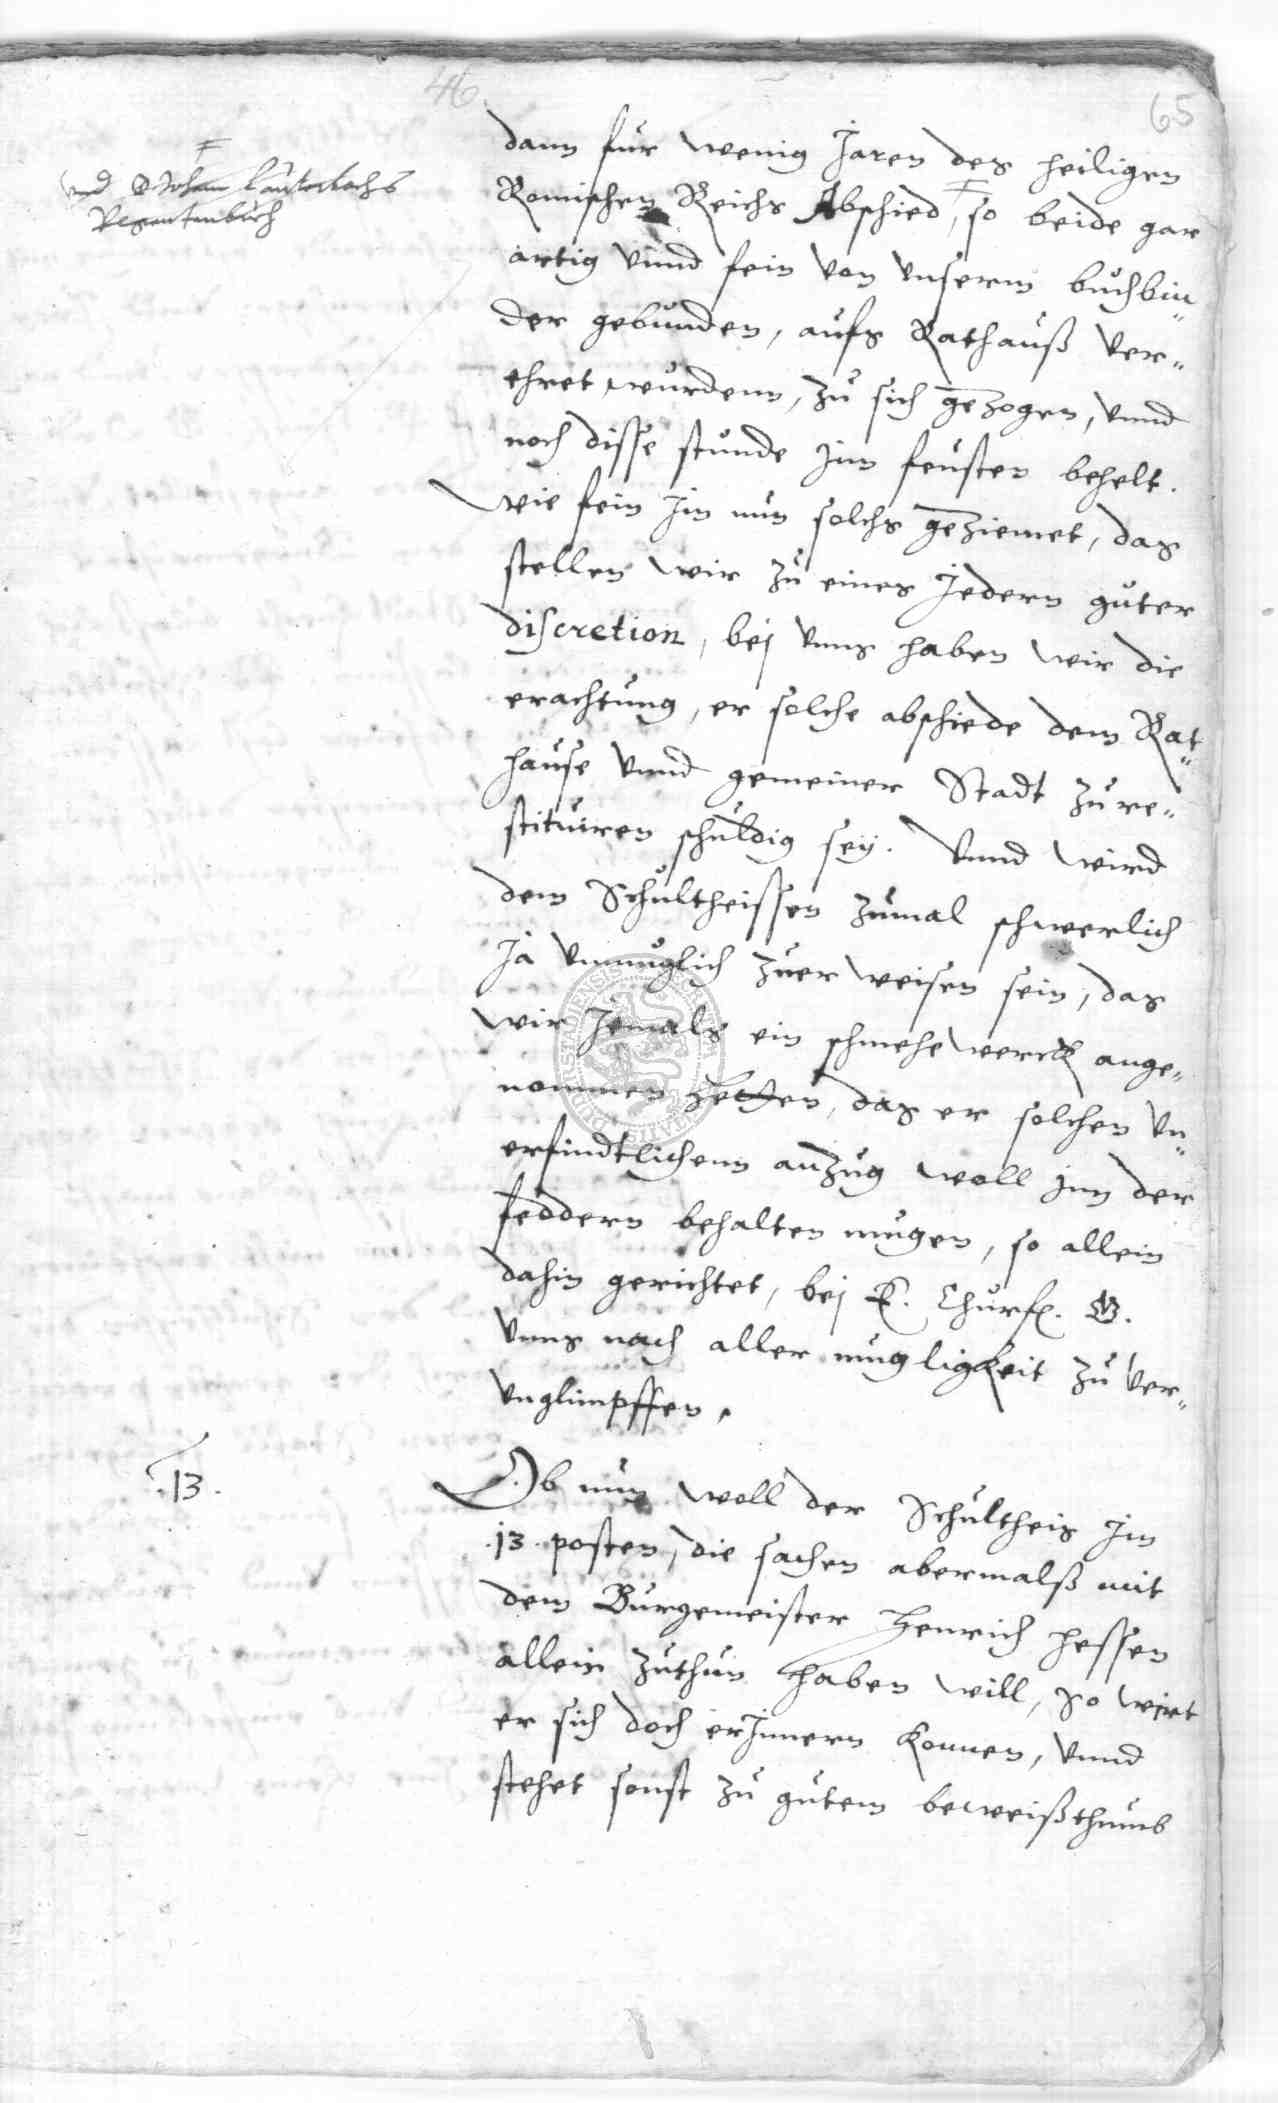 46
65
F
vnd D Johan Lauterbachs
Regentenbuch
dann fur wenig Jaren des heiligen
Romischen Reichs Abschied, F so beide gar
artig vnnd fein von vnserm buchbin„
der gebunden, aufs Rathauß ver„
ehret wurdenn, zu sich gezogen, vnnd
noch disse stunde jnn feusten behelt.
Wie fein jm nun solchs geziemet, das
stellen wir zu eines Jedern guter
discretion, bej vnns haben wir die
erachtung, er solche abschiede dem Rat„
hause vnnd gemeiner Stadt zu re„
stituiren schuldig sey. Vnnd wird
dem Schultheissen zumal schwerlich
Ja vnmuglich zuer weisen sein, das
wir Jemals ein schmehe werck ange„
nommen hetten, das er solchen vn„
erfindtlichenn anzug woll jnn der
feddern behalten mugen, so allein
dahin gerichtet, bej E. Churf. G.
vnns nach aller mugligkeit zu ver„
vnglimpffen.
.13.
Ob nun woll der Schultheis Jm
.13. posten, die sachen abermalß mit
dem Burgemeister Henrich Hessen
allein zuthun haben will, So wirt
er sich doch erJnnern konnen, vnnd
stehet sonst zu gutem beweißthumb